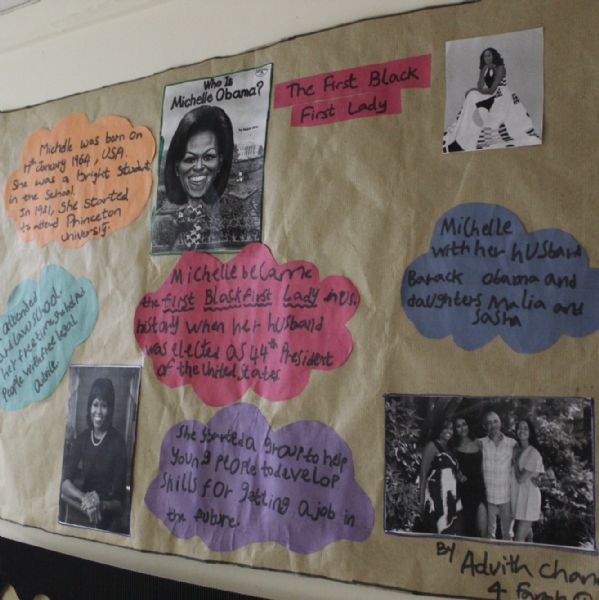 Who Is
Michelle Obama?
The First Black
First Lady
Michelle was born on
17th January 1964, USA.
She was a bright student
in the School.
In 1981, She started
to attend Princeton
University.
Michelle became
the First Black First Lady in U.S.
history when her husband
was elected as 44th President
of the United States
Michelle
with her husband
Barack Obama and
daughters Malia and
Sasha
attended
law School
her free time she helped
People with free legal
advice
She Started a group to help
Young people to develop
Skills for getting a job in
the future.
By Advith Chan
4